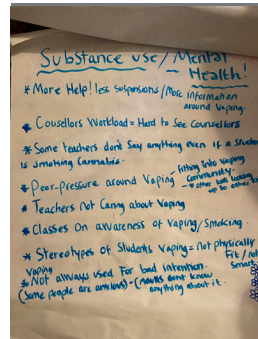 Substance use/Mental
- Health!
* More Help! less suspensions/More information
around Vaping.
* Cousellors Workload = Hard to See Counsellors
* Some teachers don't Say anything even if a Student
is smoking Cannabis.
* Peer-pressure around Vaping - fitting Into Vaping
community.
- * other kids looking
up to other
* Teachers not Caring about Vaping
* Classes on awareness of Vaping/Smoking.
* Stereotypes of Students Vaping = not physically
Fit/not
Smart
Vaping
* Not always used For bad intention.
(Some people are anxious) - (Adults dont know
anything about it.